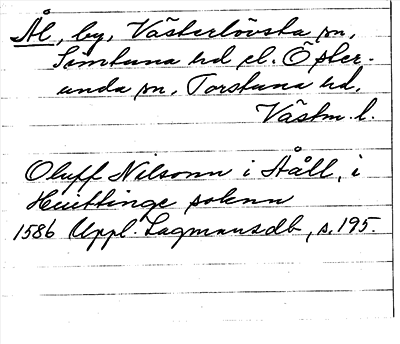 Ål, by, Västerlövsta sn,
Simtuna hd el. Öster-
unda sn, Torstuna hd,
Västm. l.
Oluff Nilsonn i Åll, i
Huittinge soknn
1586 Uppl. Lagmansdb, s. 195.